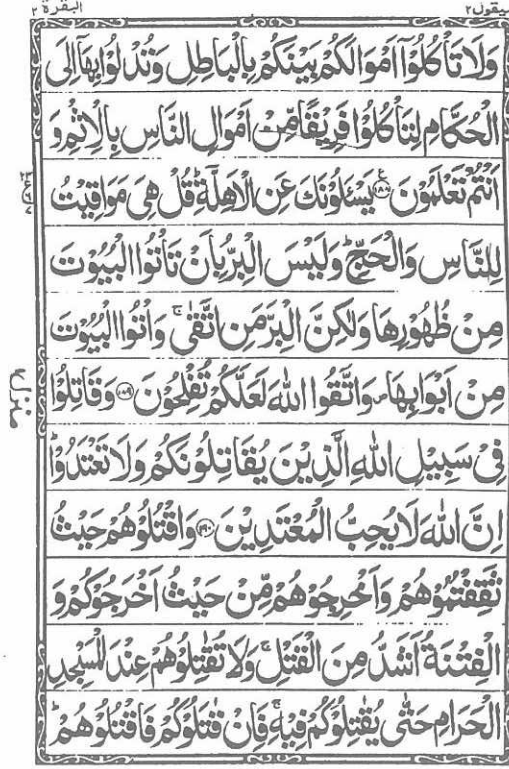 سیقول۲ البقرة ۲
وَلَا تَاْكُلُوْۤا اَمْوَالَكُمْ بَیْنَكُمْ بِالْبَاطِلِ وَتُدْلُوْا بِهَاۤ اِلَی
الْحُكَّامِ لِتَاْكُلُوْا فَرِیْقًا مِّنْ اَمْوَالِ النَّاسِ بِالْاِثْمِ وَ
اَنْتُمْ تَعْلَمُوْنَ ۱۸۸ یَسْـَٔلُوْنَكَ عَنِ الْاَهِلَّةِ ؕ قُلْ هِیَ مَوَاقِیْتُ
لِلنَّاسِ وَالْحَجِّ ؕ وَلَیْسَ الْبِرُّ بِاَنْ تَاْتُوا الْبُیُوْتَ
مِنْ ظُهُوْرِهَا وَلٰكِنَّ الْبِرَّ مَنِ اتَّقٰی ۚ وَاْتُوا الْبُیُوْتَ
مِنْ اَبْوَابِهَا ۪ وَاتَّقُوا اللّٰهَ لَعَلَّكُمْ تُفْلِحُوْنَ ۱۸۹ وَقَاتِلُوْا
فِیْ سَبِیْلِ اللّٰهِ الَّذِیْنَ یُقَاتِلُوْنَكُمْ وَلَا تَعْتَدُوْا ؕ
اِنَّ اللّٰهَ لَا یُحِبُّ الْمُعْتَدِیْنَ ۱۹۰ وَاقْتُلُوْهُمْ حَیْثُ
ثَقِفْتُمُوْهُمْ وَاَخْرِجُوْهُمْ مِّنْ حَیْثُ اَخْرَجُوْكُمْ وَ
الْفِتْنَةُ اَشَدُّ مِنَ الْقَتْلِ ۚ وَلَا تُقٰتِلُوْهُمْ عِنْدَ الْمَسْجِدِ
الْحَرَامِ حَتّٰی یُقٰتِلُوْكُمْ فِیْهِ ۚ فَاِنْ قٰتَلُوْكُمْ فَاقْتُلُوْهُمْ ؕ
منزل